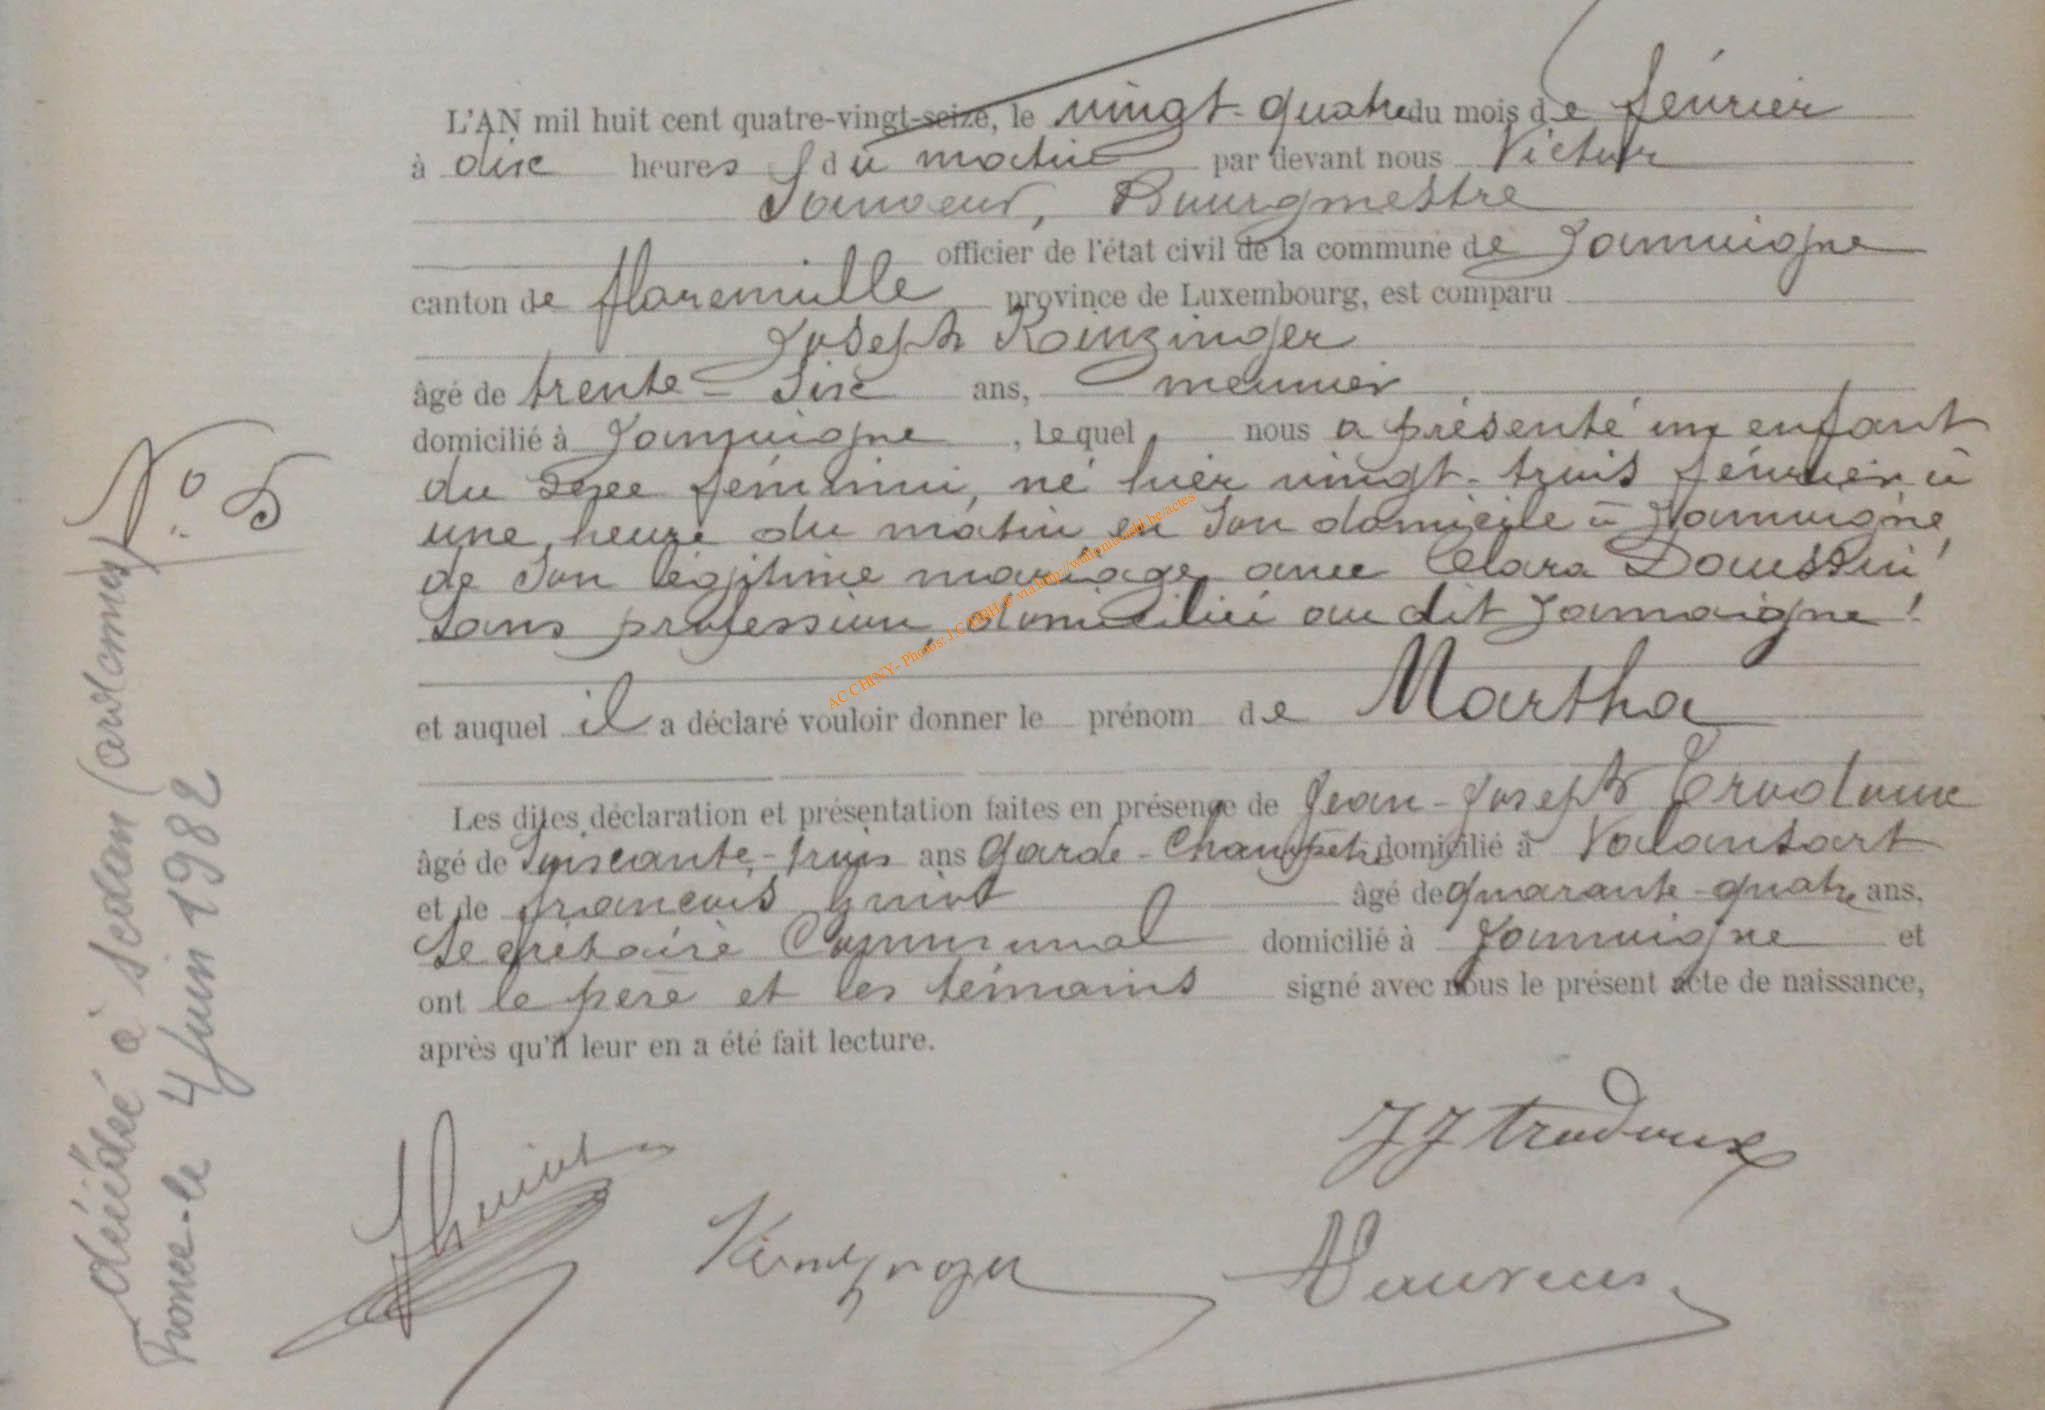 L'AN mil huit cent quatre-vingt-seize, le vingt-quatre du mois de février
à dix heures du matin par devant nous Victor
Bourgmestre
officier de l'état civil de la commune de Jamoigne
canton de florenville province de Luxembourg, est comparu
Joseph Kinzinger
âgé de trente-six ans, meunier
domicilié à Jamoigne, lequel nous a présenté un enfant
du sexe féminin, né hier vingt-trois février à
une heure du matin en son domicile à Jamoigne,
de son légitime mariage avec Clara Daussin
sans profession domiciliée au dit Jamoigne!
et auquel il a déclaré vouloir donner le prénom de Martha
Les dites déclaration et présentation faites en présence de Jean-Joseph Trodoux
âgé de Soixante-trois ans Garde-Champêtre domicilié à Valansart
et de françois Guiot âgé de quarante-quatre ans,
Secrétaire Communal domicilié à Jamoigne et
ont le père et les témoins signé avec nous le présent acte de naissance,
après qu'il leur en a été fait lecture.
JJ trodoux
Kintzinger
N° 5
décédée à Sedan (ardennes)
France - le 4 juin 1982
AC CHINY- Photos: via http://